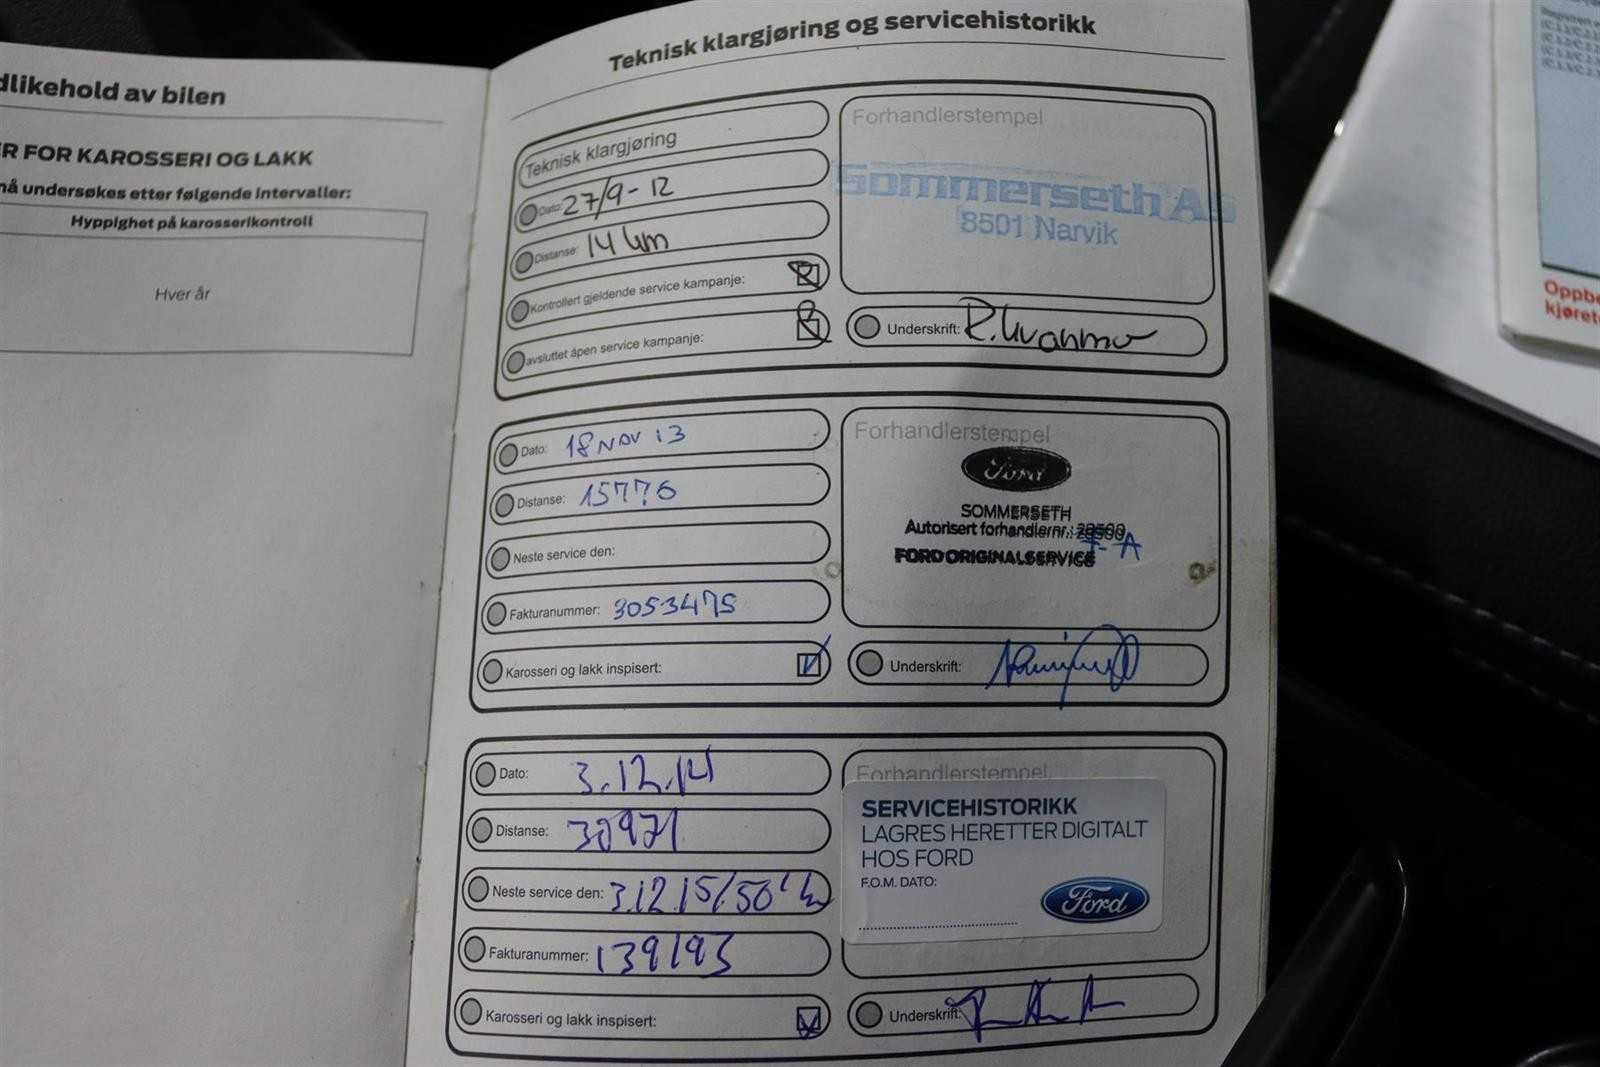 dlikehold av bilen
R FOR KAROSSERI OG LAKK
nå undersøkes etter følgende intervaller:
Hyppighet på karosserikontroll
Hver år
Teknisk klargjøring og servicehistorikk
Teknisk klargjøring
Dato: 27/9-12
Distanse: 14 km
Kontrollert gjeldende service kampanje:
avsluttet åpen service kampanje:
Forhandlerstempel
Sommerseth AS
8501 Narvik
Underskrift:
Dato: 18 NOV 13
Distanse: 15776
Neste service den:
Fakturanummer: 3053475
Karosseri og lakk inspisert:
Forhandlerstempel
Ford
SOMMERSETH
Autorisert forhandlernr.:
FORD ORIGINALSERVICE
Underskrift:
Dato: 3.12.14
Distanse: 30971
Neste service den: 3.12.15/50'
Fakturanummer: 139193
Karosseri og lakk inspisert:
Forhandlerstempel
SERVICEHISTORIKK
LAGRES HERETTER DIGITALT
HOS FORD
F.O.M. DATO:
Ford
Underskrift:
Oppbe
kjøret